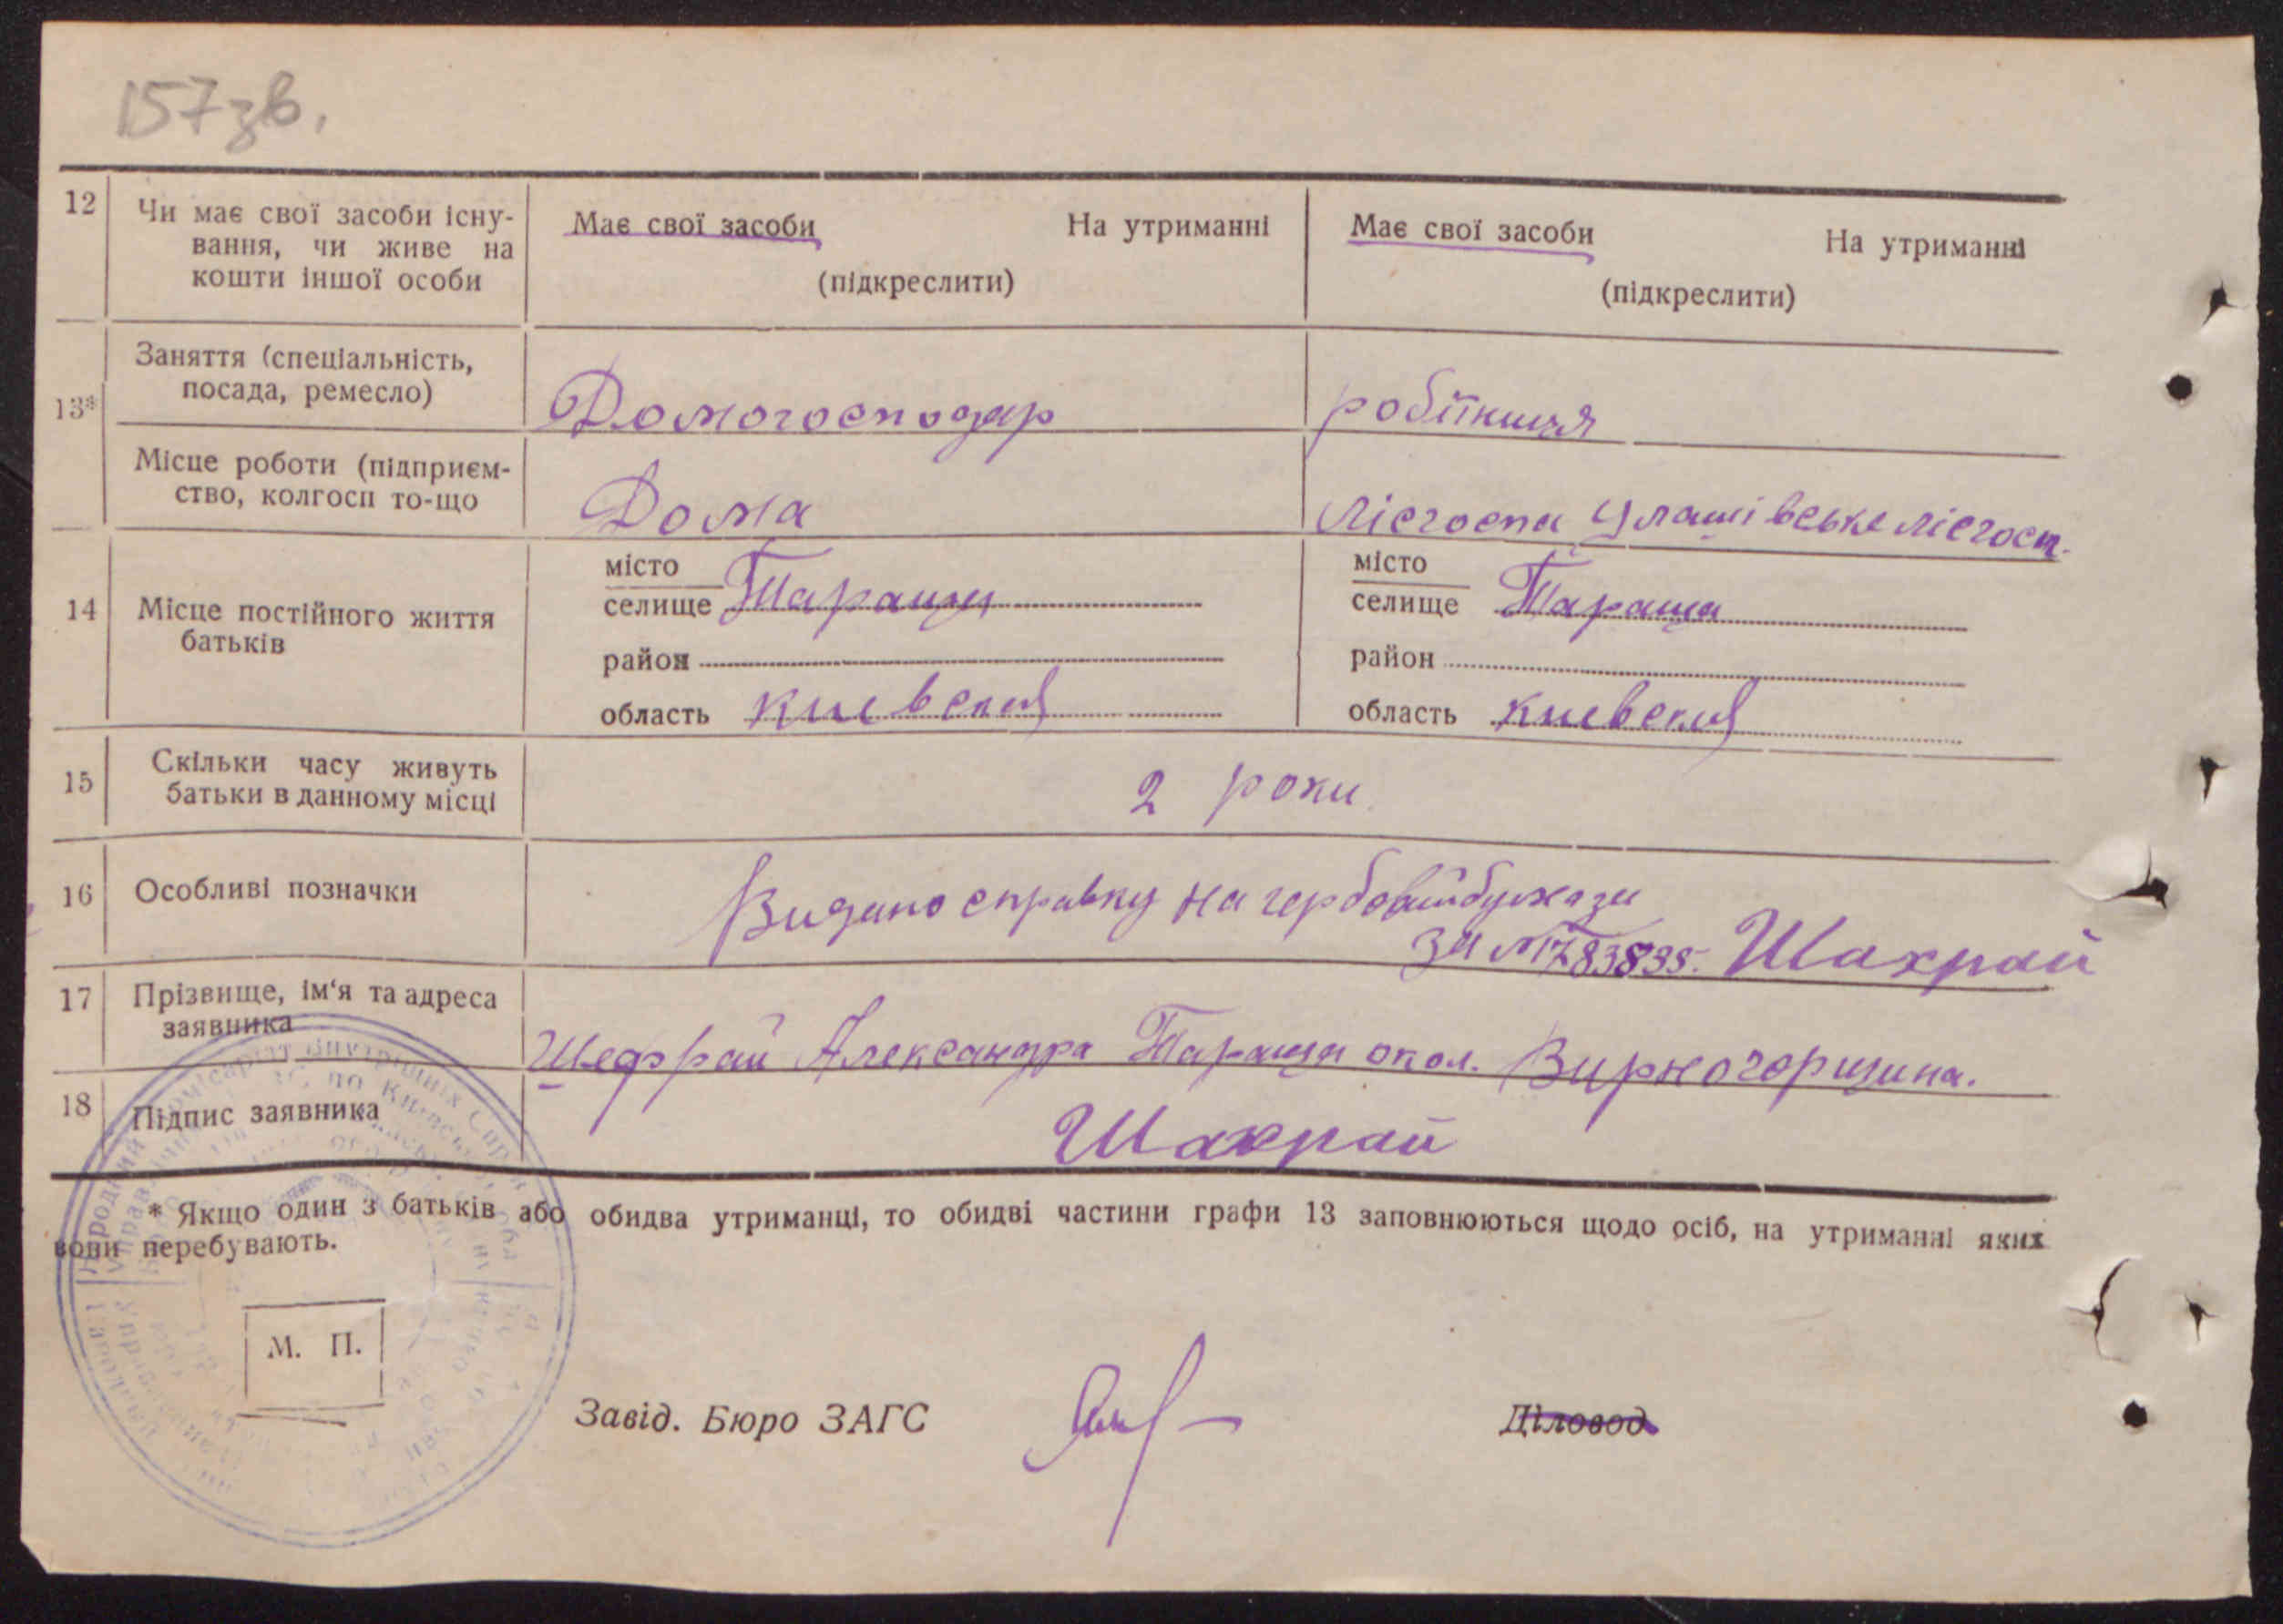 157зв.
12 Чи має свої засоби існу-
вання, чи живе на
кошти іншої особи
Має свої засоби На утриманні
(підкреслити)
Має свої засоби На утриманні
(підкреслити)
13*
Заняття (спеціальність,
посада, ремесло)
Домогосподар
робітниця
Місце роботи (підприєм-
ство, колгосп то-що
Дома
Лісгоспа Улашівське лісгосп.
14 Місце постійного життя
батьків
місто
селище Тараща
район
область киевская
місто
селище Тараща
район
область киевская
15 Скільки часу живуть
батьки в данному місці
2 роки
16 Особливі позначки
Видано справку на гербовій бумазі
за № 783835. Шахрай
17 Прізвище, ім'я та адреса
заявника
Александра Тараща окол.
18 Підпис заявника
Шахрай
* Якщо один з батьків або обидва утриманці, то обидві частини графи 13 заповнюються щодо осіб, на утриманні яких
вони перебувають.
М. П.
Завід. Бюро ЗАГС
Діловод